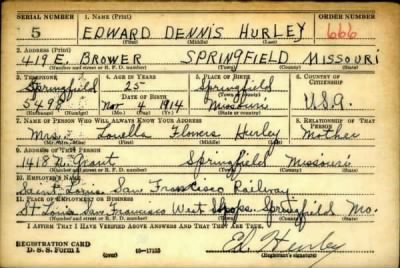 SERIAL NUMBER 1. NAME (Print) ORDER NUMBER
5 EDWARD DENNIS HURLEY 666
(First) (Middle) (Last)
2. ADDRESS (Print)
419 E. BROWER SPRINGFIELD MISSOURI
(Number and street or R. F. D. number) (Town) (County) (State)
3. TELEPHONE 4. AGE IN YEARS 5. PLACE OF BIRTH 6. COUNTRY OF CITIZENSHIP
Springfield 25 Springfield
5498 DATE OF BIRTH
Nov 4 1914 Missouri U.S.A.
7. NAME OF PERSON WHO WILL ALWAYS KNOW YOUR ADDRESS 8. RELATIONSHIP OF THAT PERSON
Mrs. Louella Flowers Hurley Mother
9. ADDRESS OF THAT PERSON
1418 N. Grant Springfield Missouri
(Number and street or R. F. D. number) (Town) (County) (State)
10. EMPLOYER'S NAME
Saint Louis San Francisco Railway
11. PLACE OF EMPLOYMENT OR BUSINESS
St Louis San Francisco West Shops Springfield Mo.
(Number and street or R. F. D. number) (Town) (County) (State)
I AFFIRM THAT I HAVE VERIFIED ABOVE ANSWERS AND THAT THEY ARE TRUE.
REGISTRATION CARD
D. S. S. FORM 1 (over) 16-17105 Ed Hurley
(Registrant's signature)